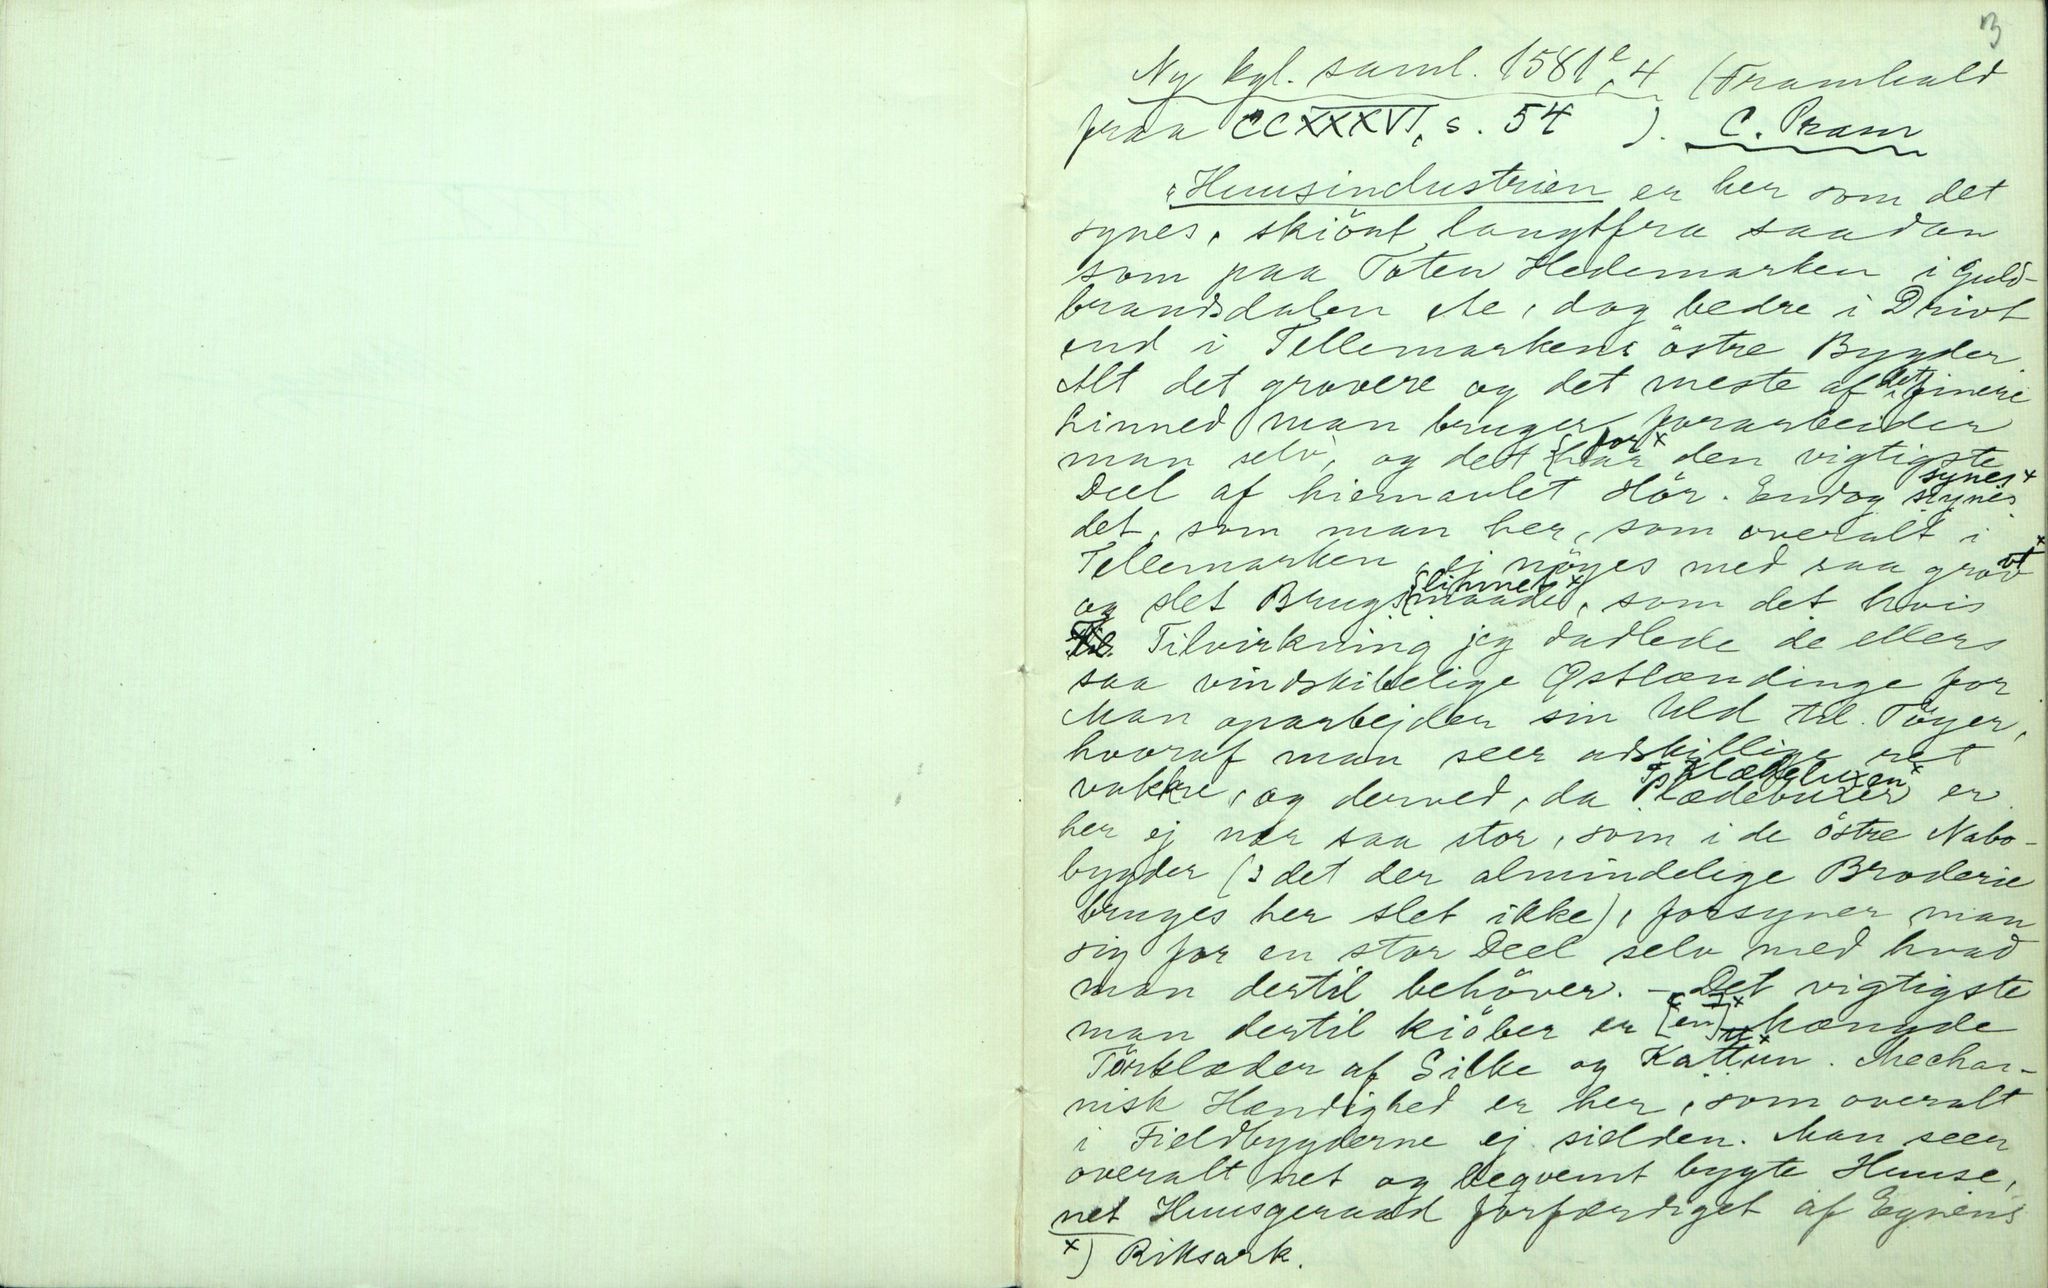 3
Ny kgl. saml. 1581 e, 4 (Framhald
fraa CCXXXVI, s. 54 ). C. Pram
"Huusindustrien er her som det
synes, skiönt langtfra saadan
som paa Toten Hedemarken i Guld-
brandsdalen etc, dog bedre i Drivt
end i Tellemarkens östre Bygder.
Alt det grovere og det meste af det finere
Linned man bruger forarbeider
man selv, og det har for x den vigtigste
Deel af hiemavlet Hör. Endog siynes synes x
det, som man her, som overalt i
Tellemarken, ej nöyes med saa grov vt x
og slet Brugsmaade linnet x, som det hvis
Til Tilvirkning jeg dadlede de ellers
saa vindskibelige Østlændinge for
Man oparbejder sin Uld til Töyer,
hvoraf man seer adskillige ret
vakkre, og derved, da Plædebuxer Klædeluxen x er
her ej nær saa stor, som i de östre Nabo-
bygder (ɔ det der almindelige Broderie
bruges her slet ikke), forsyner man
sig for en stor Deel selv med hvad
man dertil behöver. – Det vigtigste
man dertil kiöber er [en] x kængde
Törklæder af Silke og Kattun x. Mecha-
nisk Hændighed er her, som overalt
i Fieldbygderne ej sielden. Man seer
overalt net og beqvemt bygte Huuse,
net Huusgeraad forfærdiget af Egnens
x) Riksark.